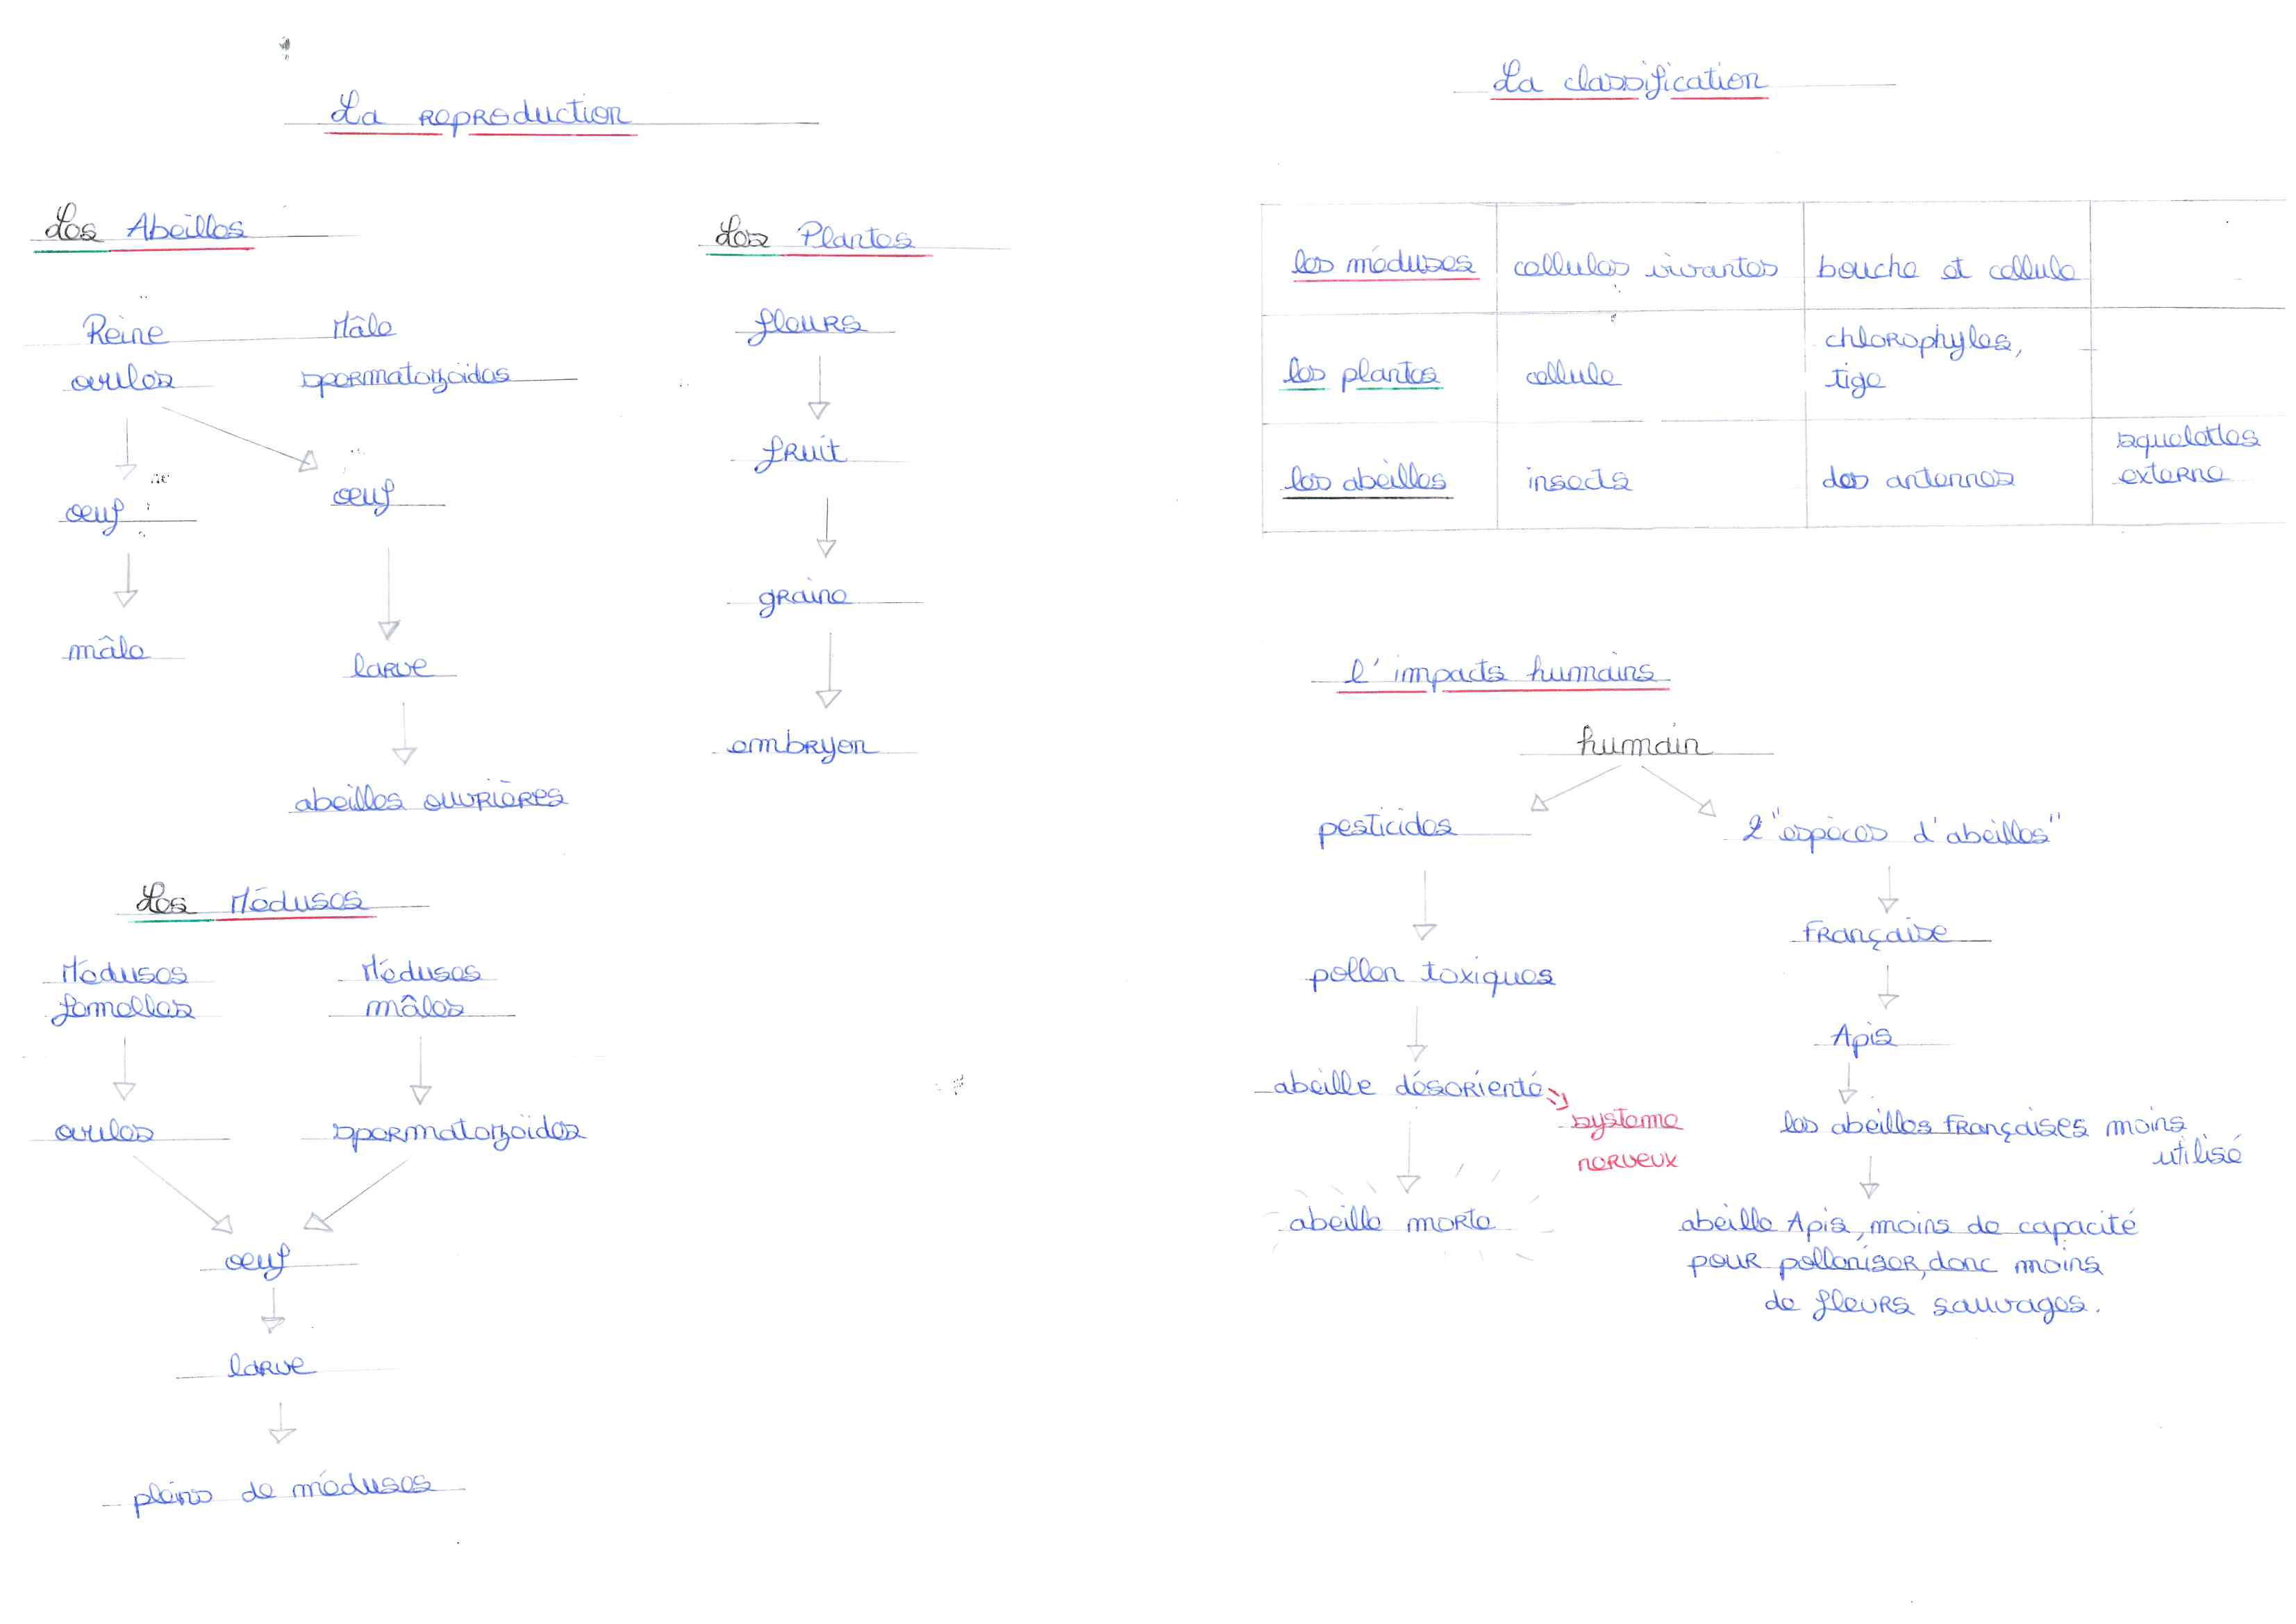 La reproduction
Les Abeilles
Reine Mâle
ovules spermatozoïdes
oeuf oeuf
mâle larve
abeilles ouvrières
Les Plantes
fleurs
fruit
graine
embryon
Les Méduses
Méduses Méduses
femelles mâles
ovules spermatozoïdes
oeuf
larve
pleins de méduses
La classification
les méduses cellules vivantes bouche et cellule
les plantes cellule chlorophyles,
tige
les abeilles insects des antennes squelettes
externe
l'impacts humains
humain
pesticides 2 "espèces d'abeilles"
pollen toxiques
abeille désorienté
systeme
nerveux
abeille morte
Française
Apis
les abeilles Françaises moins
utilisé
abeille Apis, moins de capacité
pour polleniser, donc moins
de fleurs sauvages.